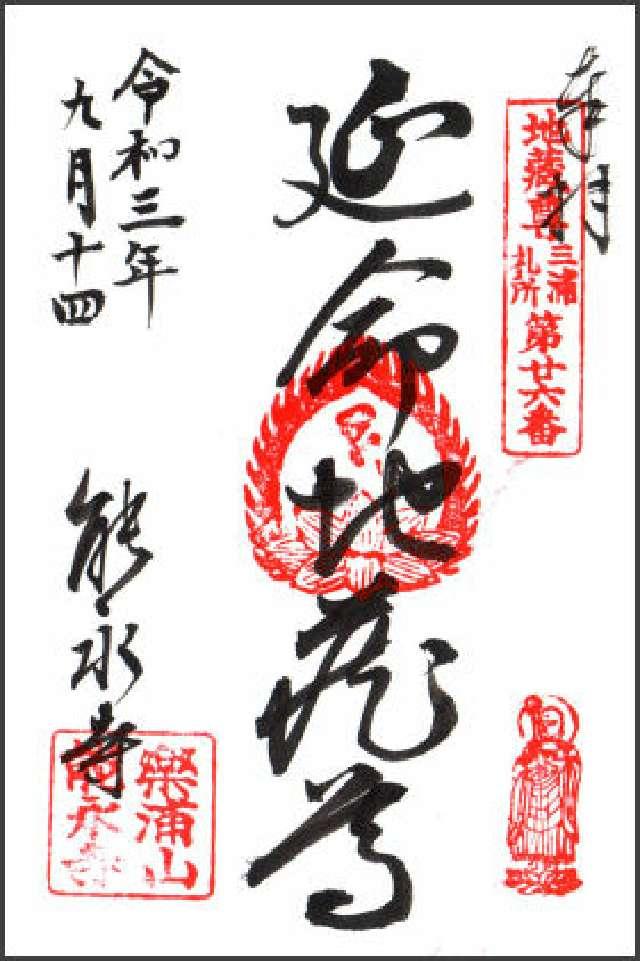 奉拝
地蔵尊 三浦札所 第廿六番
延命地蔵尊
令和三年
九月十四
能永寺
楽浦山
能永寺